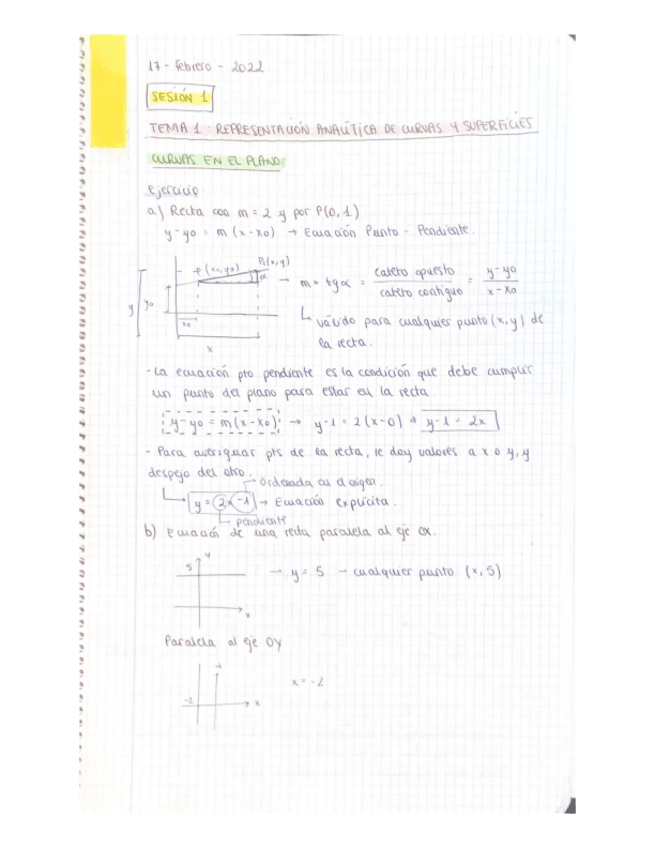 17 - Febrero - 2022
SESIÓN 1
TEMA 1: REPRESENTACIÓN ANALÍTICA DE CURVAS Y SUPERFICIES
CURVAS EN EL PLANO
Ejercicio
a) Recta con m = 2 y por P(0, 1)
y-y0 = m (x-x0) → Ecuación Punto - Pendiente.
P (x0, y0)
P1(x, y)
α
y
y0
x0
x
→ m = tgα = cateto opuesto / cateto contiguo = y-y0 / x-x0
válido para cualquier punto (x, y) de
la recta.
- La ecuación pto pendiente es la condición que debe cumplir
un punto del plano para estar en la recta.
y-y0 = m(x-x0) → y-1 = 2(x-0) → y-1 = 2x
- Para averiguar pts de la recta, le doy valores a x o y, y
despejo del otro.
→ ordenada en el origen.
y = 2x -1 → Ecuación explícita.
pendiente
b) Ecuación de una recta paralela al eje OX.
y
5
x
→ y = 5 → cualquier punto (x, 5)
Paralela al eje OY
-2
x
x = -2